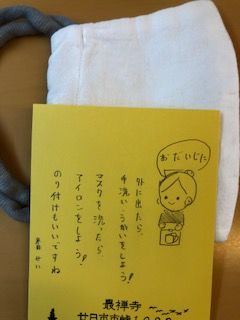 おだいじに
外に出たら、
手洗い・うがいをしよう!
マスクを洗ったら、
アイロンをしよう!
のり付けもいいですね
最禅寺
廿日市市